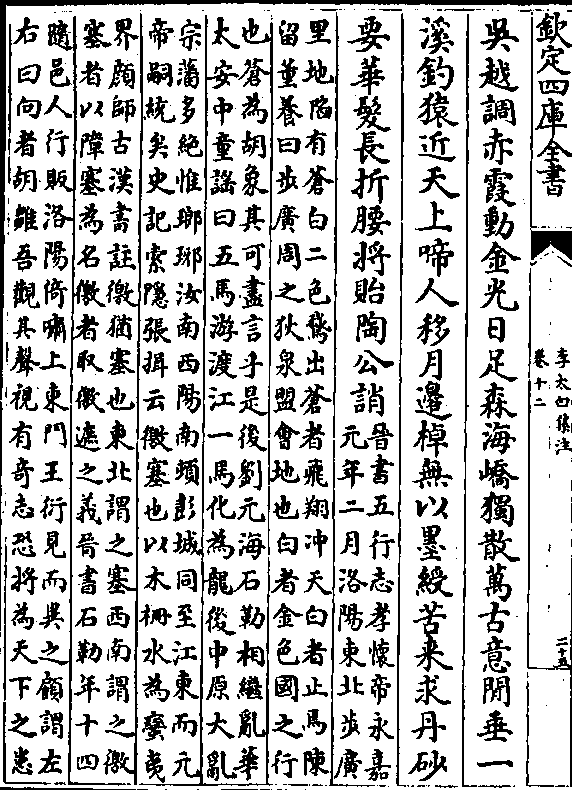 欽定四庫全書
李太白集注
卷十二
二十五
吳越調赤霞動金光日足森海嶠獨散萬古意閒垂一
溪釣猿近天上啼人移月邊棹無以墨綬苦来求丹砂
要華髮長折腰將貽陶公誚
晉書五行志孝懷帝永嘉
元年二月洛陽東北步廣
里地陷有蒼白二色鵞出蒼者飛翔冲天白者止焉陳
留董養曰步廣周之狄泉盟會地也白者金色國之行
也蒼為胡象其可盡言乎是後劉元海石勒相繼亂華
太安中童謠曰五馬游渡江一馬化為龍後中原大亂
宗藩多絶惟瑯琊汝南西陽南頓彭城同至江東而元
帝嗣統矣史記索隱張揖云徼塞也以木柵水為蠻夷
界顔師古漢書註徼猶塞也東北謂之塞西南謂之徼
塞者以障塞為名徼者取徼遮之義晉書石勒年十四
隨邑人行販洛陽倚嘯上東門王衍見而異之顧謂左
右曰向者胡雛吾觀其聲視有奇志恐將為天下之患